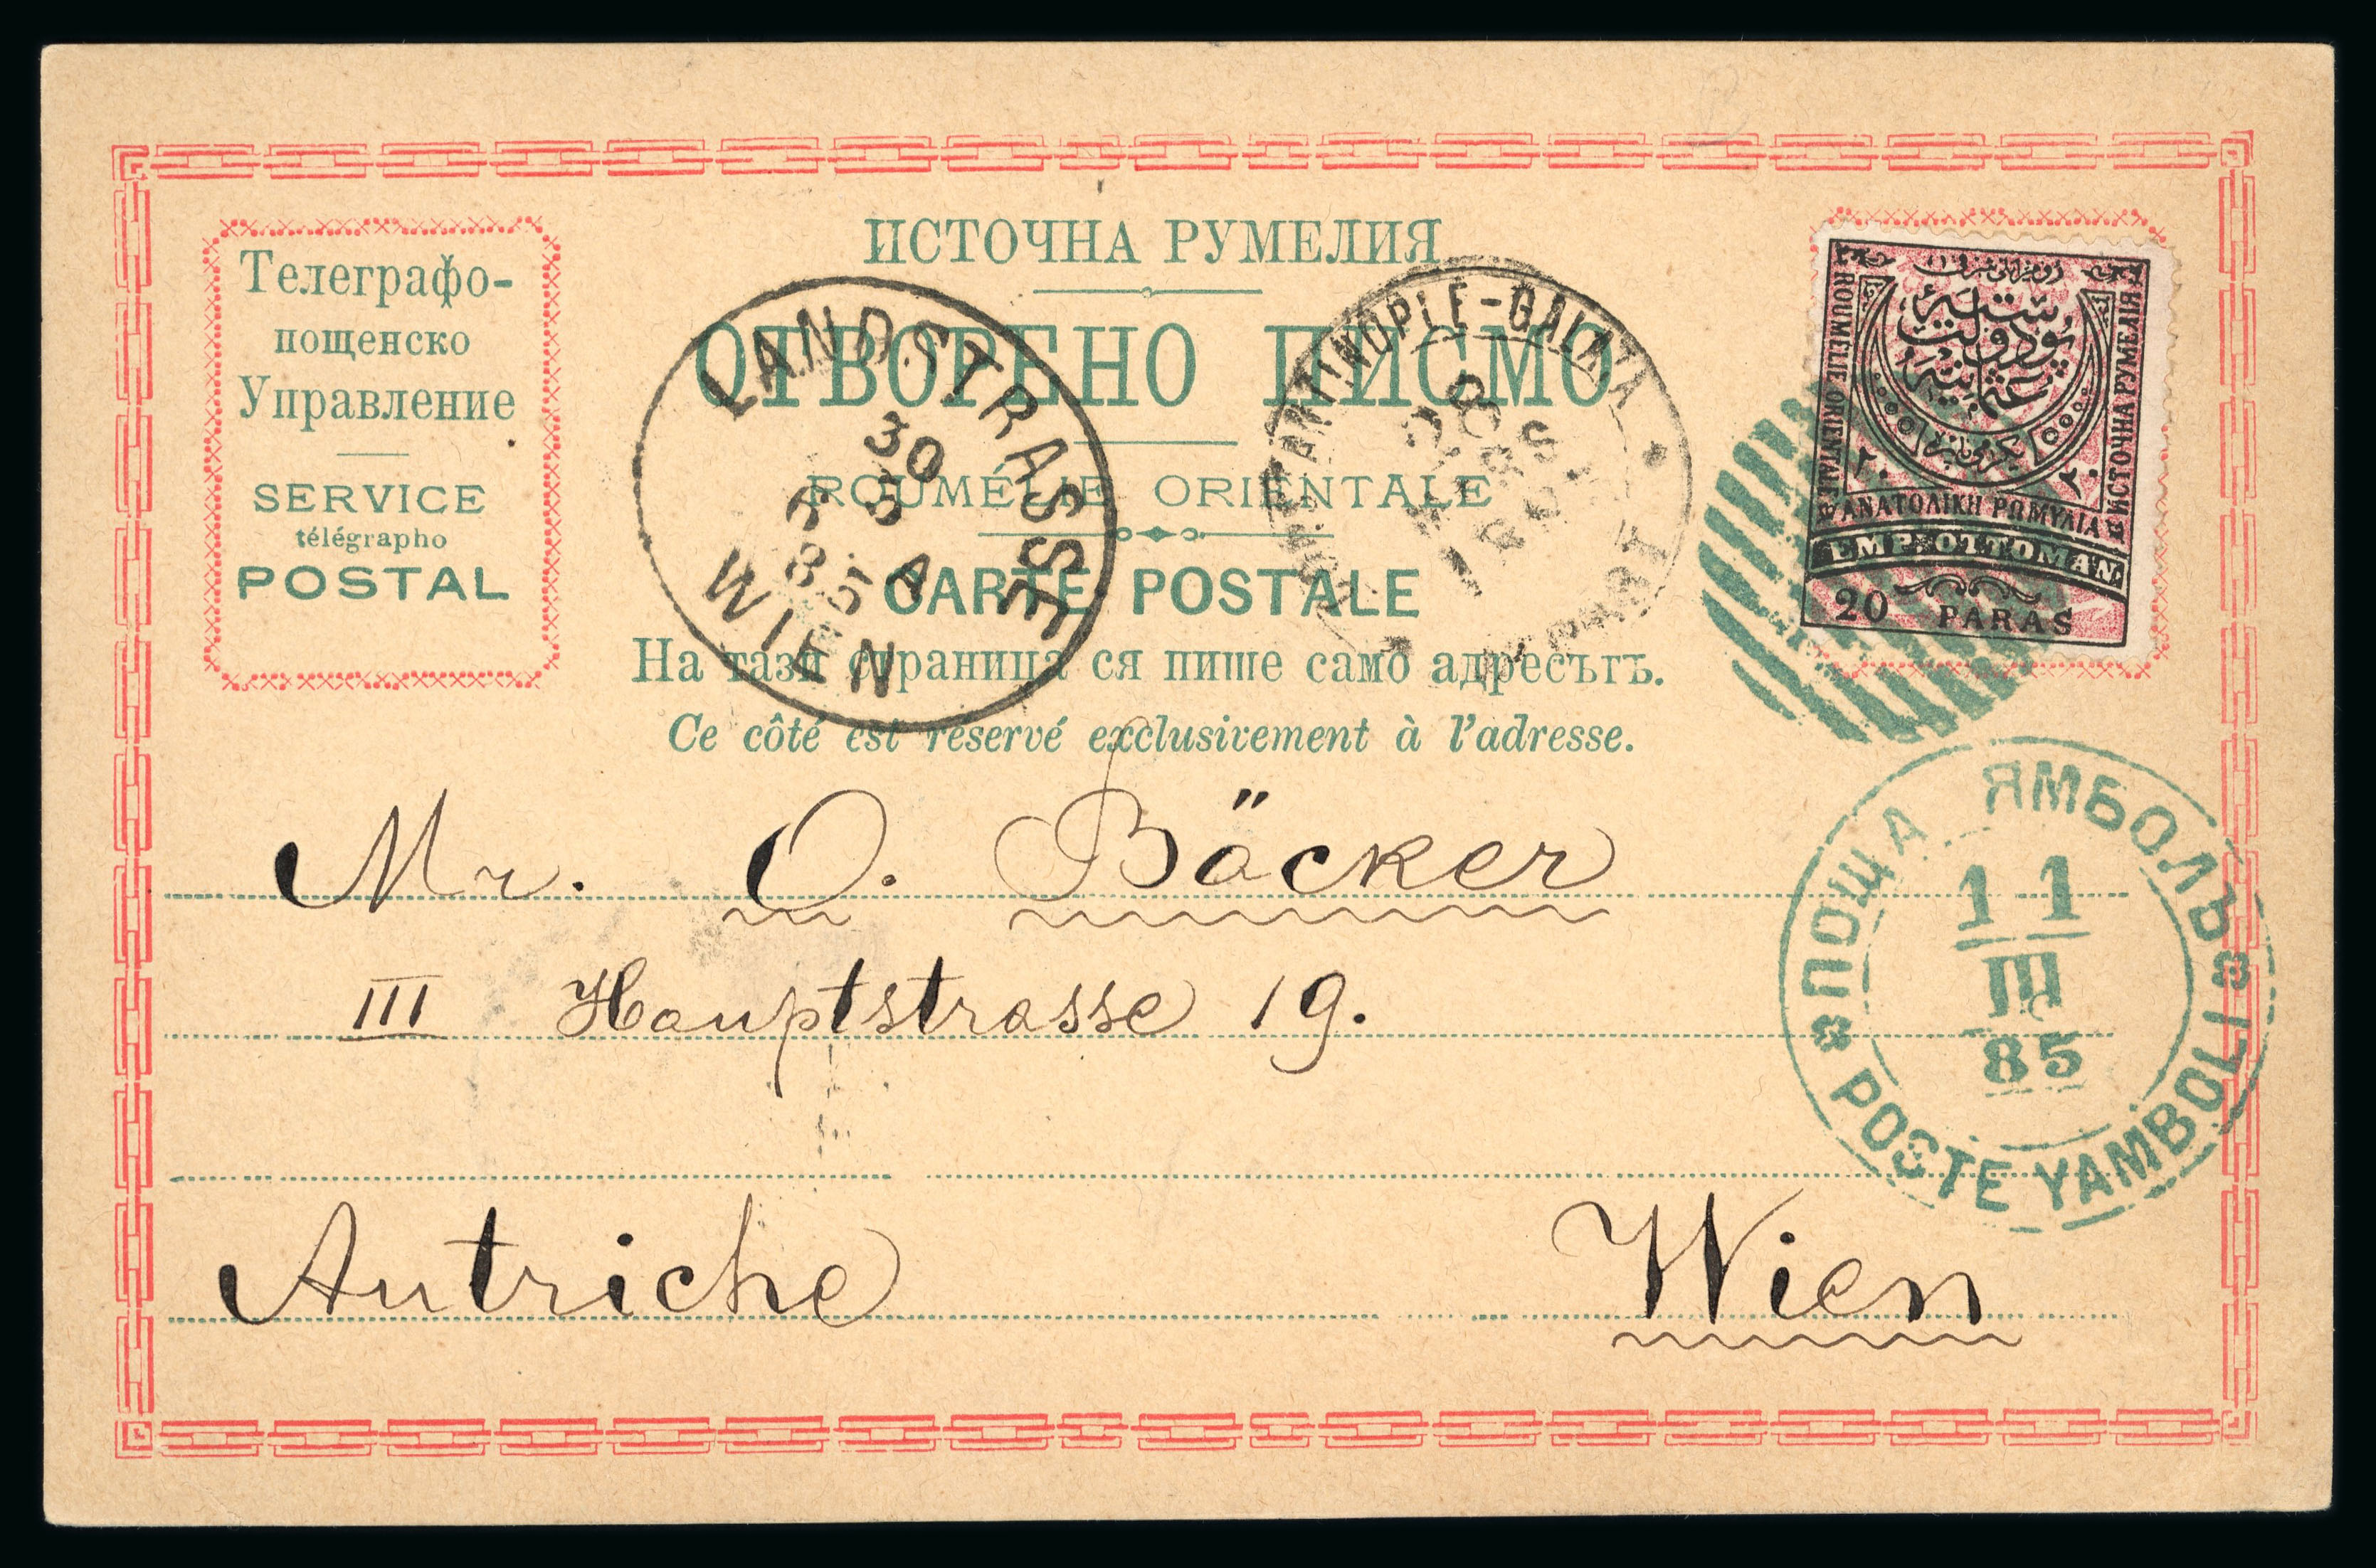 Телеграфо-
пощенско
Управление
SERVICE
télégrapho
POSTAL
ИСТОЧНА РУМЕЛИЯ
ОТВОРЕНО ПИСМО
ROUMÉLIE ORIENTALE
CARTE POSTALE
На тази страница ся пише само адресътъ.
Ce côté est réservé exclusivement à l'adresse.
LANDSTRASSE
30
5
6 A
85
WIEN
CONSTANTINOPLE-GALATA
ROUMELIE ORIENTALE
ИСТОЧНА РУМЕЛІЯ
ΑΝΑΤΟΛΙΚΗ ΡΩΜΥΛΙΑ
EMP: OTTOMAN.
٢٠ ٢٠
20 PARAS
ПОЩА ЯМБОЛЪ
11
III
85
POSTE YAMBOLI
Mr. O. Bäcker
III Hauptstrasse 19.
Autriche Wien